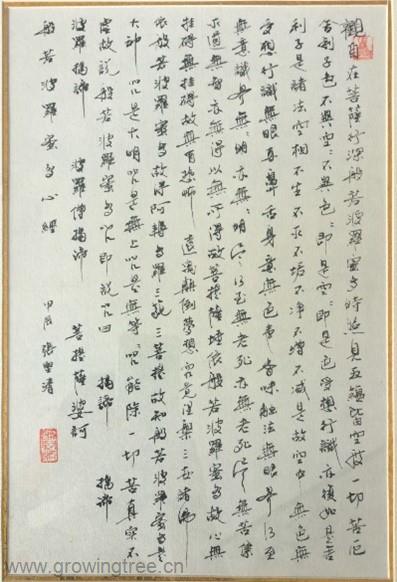 觀自在菩薩行深般若波羅蜜多時照見五蘊皆空度一切苦厄
舍利子色不異空々不異色々即是空々即是色受想行識亦復如是舍
利子是諸法空相不生不滅不垢不淨不增不減是故空中無色無
受想行識無眼耳鼻舌身意無色聲香味觸法無眼界乃至
無意識界無々明亦無々明盡乃至無老死亦無老死盡無苦集
滅道無智亦無得以無所得故菩提薩埵依般若波羅蜜多故心無
挂礙無挂礙故無有恐怖遠離顛倒夢想究竟涅槃三世諸佛
依般若波羅蜜多故得阿耨多羅三藐三菩提故知般若波羅蜜多是
大神咒是大明咒是無上咒是無等々咒能除一切苦真實不
虛故說般若波羅蜜多咒即說咒曰 揭諦 揭諦
波羅揭諦 波羅僧揭諦 菩提薩婆訶
般若波羅蜜多心經
張 清
www.growingtree.cn